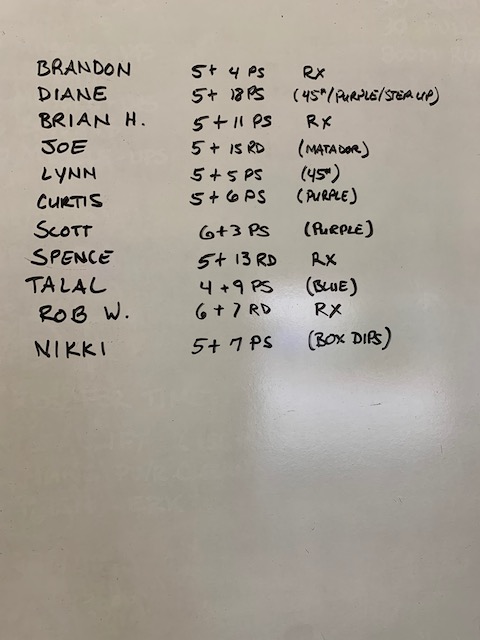 BRANDON 5+ 4 PS RX
DIANE 5+ 18 PS (45#/PURPLE/STEP UP)
BRIAN H. 5 + 11 PS RX
JOE 5 + 15 RD (MATADOR)
LYNN 5 + 5 PS (45#)
CURTIS 5 + 6 PS (PURPLE)
SCOTT 6+3 PS (PURPLE)
SPENCE 5 + 13 RD RX
TALAL 4 + 9 PS (BLUE)
ROB W. 6 + 7 RD RX
NIKKI 5 + 7 PS (BOX DIPS)